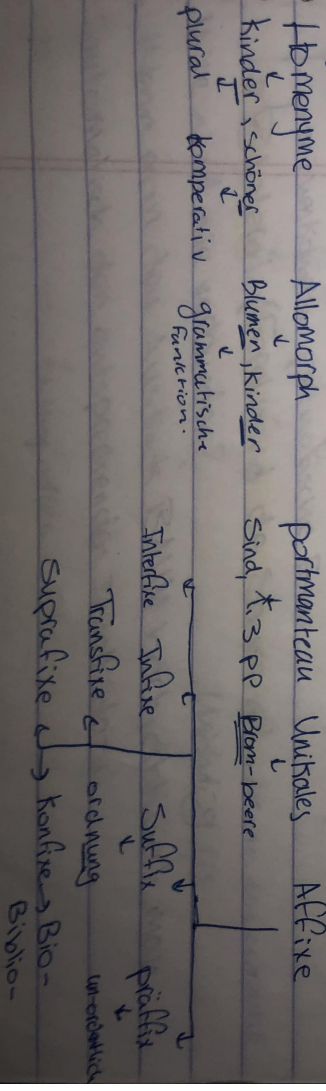 Homenyme Allomorph portmanteau Unikales Affixe
Kinder, schöner Blumen, Kinder Sind, *. 3 pp Brom-beere
plural komperativ grammatische
Funktion.
Interfixe Infixe Suffix präffix
Transfixe ordnung un-ordentlich
Suprafixe Konfixe Bio-
Biblio-